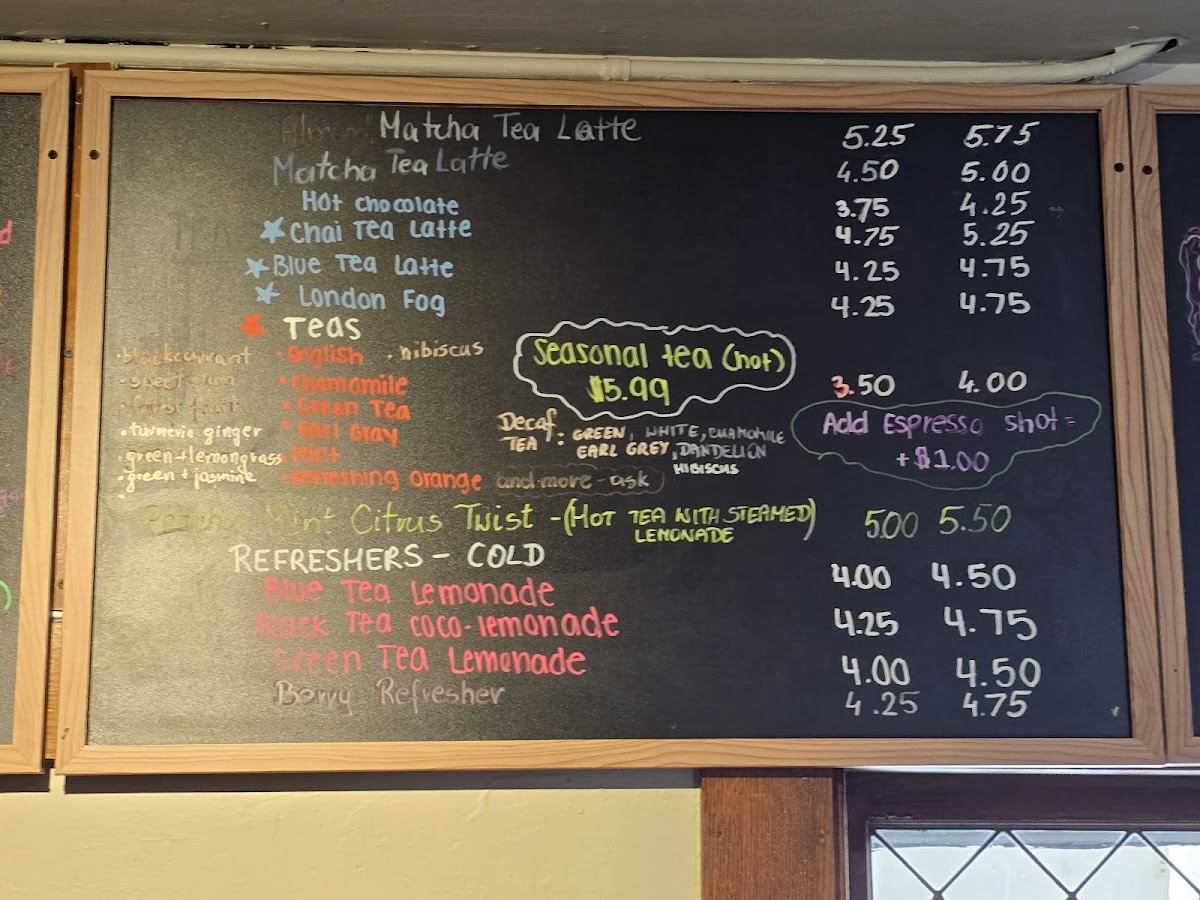 Almond Matcha Tea Latte 5.25 5.75
Matcha Tea Latte 4.50 5.00
Hot chocolate 3.75 4.25
Chai Tea Latte 4.75 5.25
Blue Tea Latte 4.25 4.75
London Fog 4.25 4.75
Teas
•blackcurrant •English •hibiscus
Seasonal tea (hot)
$5.99
• Chamomile 3.50 4.00
• Green Tea
• Earl Gray
•turmeric ginger
•green+lemongrass •Mint
•green + jasmine •Refreshing orange and more - ask
Decaf
TEA : GREEN, WHITE, CHAMOMILE
EARL GREY, DANDELION
HIBISCUS
Add Espresso shot =
+ $1.00
Mint Citrus Twist - (HOT TEA WITH STEAMED) 5.00 5.50
LEMONADE
REFRESHERS - COLD
Blue Tea Lemonade 4.00 4.50
Black Tea coco-lemonade 4.25 4.75
Green Tea Lemonade 4.00 4.50
Berry Refresher 4.25 4.75